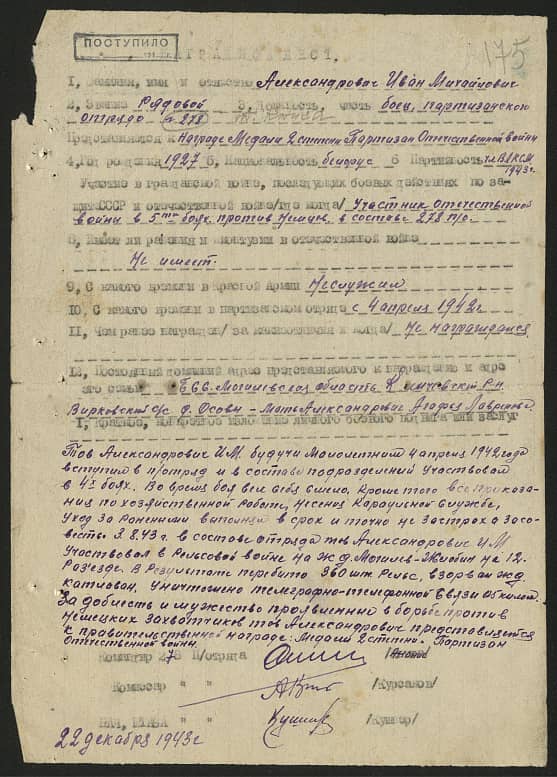 ПОСТУПИЛО
175
НАГРАДНОЙ ЛИСТ.
1, Фамилия, имя и отчество Александрович Иван Михайлович
2, Звание Рядовой 3, Должность, часть боец, партизанского
отряда № 278
Представляется к Награде Медали 2 степени Партизан Отечественной войны
4, Год рождения 1927 5, Национальность белорус 6 Партийность чл ВЛКСМ
1943г.
Участие в гражданской войне, последующих боевых действиях по за-
щите СССР и отечественной войне/где когда/ Участник Отечественной
войны в 5ти боях против Немцев в составе 278 п/о.
8, Имеет ли ранения и контузии в отечественной войне
Не имеет.
9, С какого времени в Красной Армии Неслужил
10, С какого времени в партизанском отряде с 4 апреля 1942г
11, Чем ранее награжден/ за какие отличия и когда/ Не награждался
12, Постоянный домашний адрес представляемого к награждению и адрес
его семьи БССР Могилевская область Кличевский р-н
Вирковский с/с д. Осовы - мать Александрович Агафья Лавреновна
1, Краткое, конкретное изложение личного боевого подвига или заслуг
Тов Александрович И.М. будучи Малолетним 4 апреля 1942 года
вступил в п/отряд и в составе подразделений Участвовал
в 4х боях. Во время боя вел себя смело, кроме того все приказа-
ния по хозяйственной работе, Несении Караульной Службе,
Уход За Ранеными выполнял в срок и точно не За страх а За со-
весть. 3.8.43г. в составе отряда тов Александрович И.М
Участвовал в Рельсовой войне на ж.д. Могилев-Жлобин на 12-
Разъезде. В Результате перебито 360 шт. Рельс, взорван жд
катлован, Уничтожено телеграфно-телефонной Связи
За доблесть и мужество проявленные в борьбе против
Немецких Захватчиков тов Александрович представляется
к правительственной награде: Медали 2 степени Партизан
Отечественной войны.
Командир 278 П/отряда
Комиссар " " /Курсаков/
НАЧ, ШТАБА " " /Кушнер/
22 декабря 1943г